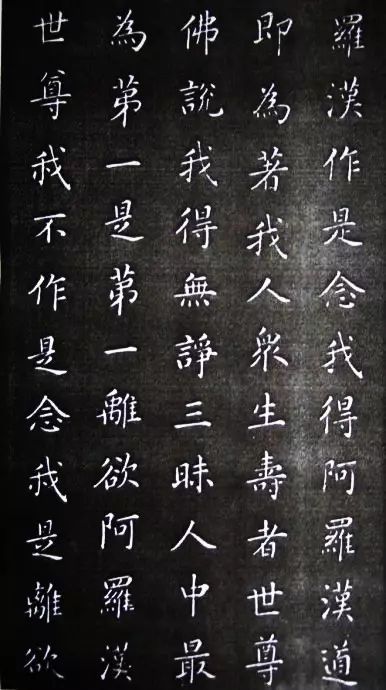 羅漢作是念我得阿羅漢道
即為著我人衆生壽者世尊
佛說我得無諍三昧人中最
為苐一是苐一離欲阿羅漢
世尊我不作是念我是離欲